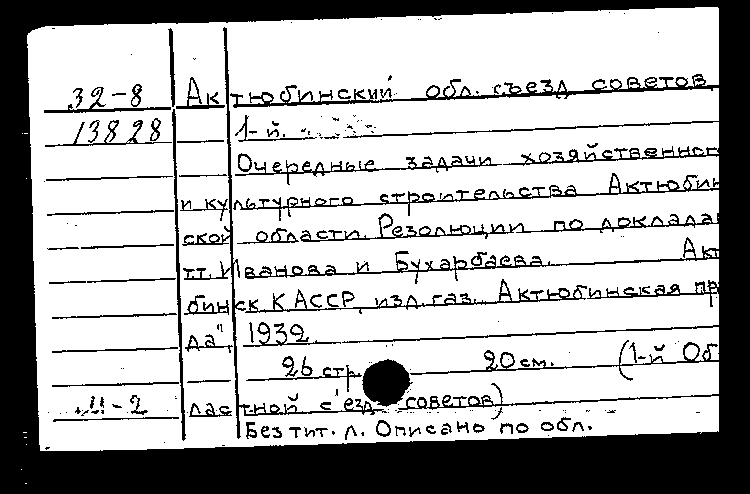 32-8 Актюбинский обл. съезд советов.
13828 1-й.
Очередные задачи хозяйственног
и культурного строительства Актюбин
ской области. Резолюции по доклада
тт. Иванова и Бухарбаева. Акт
бинск КАССР, изд. газ. Актюбинская пр
да", 1932.
26 стр. 20 см. (1-й Об
-2 ластной с'езд советов)
Без тит. л. Описано по обл.